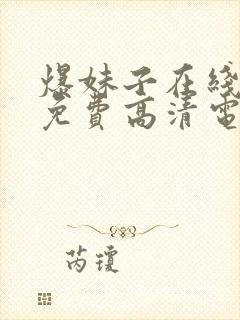 爆妹子在线
免费高清电
芮瓊